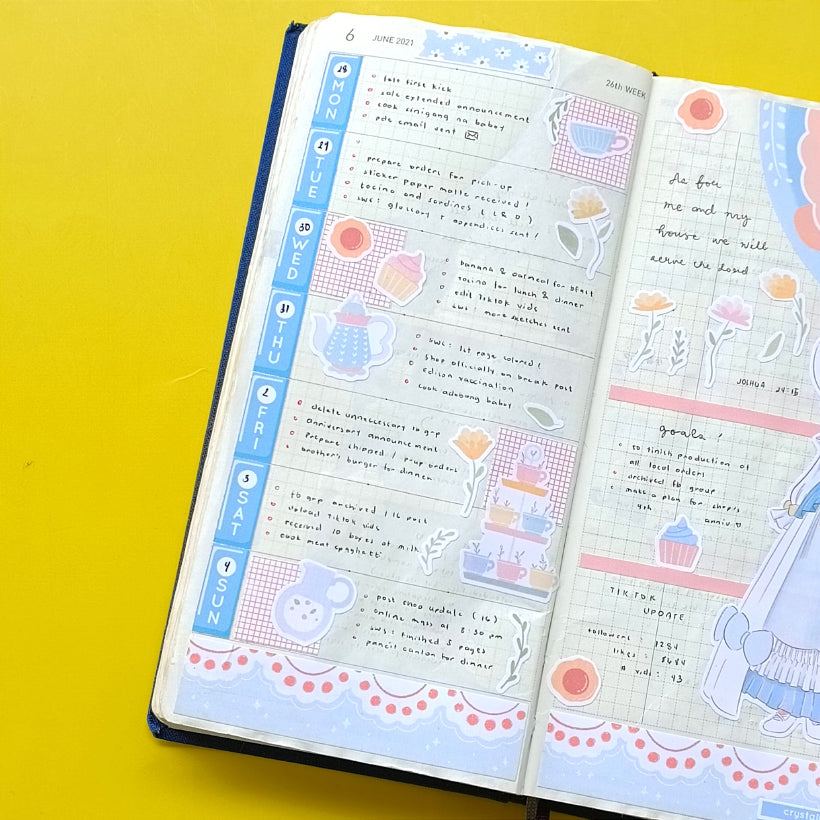 6 JUNE 2021
26th WEEK
28
MON
last first kick
sale extended announcement
cook sinigang na baboy
pdc email sent
29
TUE
prepare orders for pick-up
sticker paper matte received!
tocino and sardines (L & D)
swc: glossary & appendices sent!
30
WED
banana & oatmeal for bfast
tocino for lunch & dinner
edit Tiktok vids
swc: more sketches sent
31
THU
swc: 1st page colored!
shop officially on break post
edison vaccination
cook adobong baboy
2
FRI
delete unnecessary to g-p
anniversary announcement
prepare shipped / p-up orders
brother's burger for dinner
3
SAT
fb grp archived / ig post
upload Tiktok vids
received 10 boxes of milk
cook meat spaghetti
4
SUN
post shop update (IG)
online mass at 8:30 pm
swc: finished 3 pages
pancit canton for dinner
As for
me and my
house we will
serve the Lord
JOSHUA 24:15
goals!
to finish production of
all local orders
archived fb group
make a plan for shop's
4th anniv
TIKTOK
UPDATE
followers 1284
likes 8484
# vids: 43
crystal